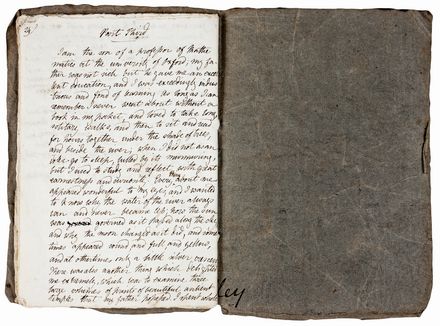 Part Third
I am the son of a professor of Mathe
matics at the university of Oxford, my fa
ther was not rich but he gave me an excel
lent education, and I was exceedingly indus
trious and fond of learning. As long as I can
remember I never went about without a
book in my pocket, and loved to take long
solitary walks, and then to sit and read
for hours together under the shade of trees
and beside the river, when I did not
go to sleep, lulled by its murmuring,
but I used to study and reflect with great
earnestness and curiosity. Every thing about me
appeared wonderful to my eyes, and I wanted
to know why the water of the river always
ran and never became less, how the sun
was governed as it passed along the sky
and why the moon changes as it did, and some
times appeared round and full and yellow,
and at other times only a little silver crescent
There was also another thing which delighted
me extremely, which was to examine three
large volumes of prints of beautiful antient
temples that my father possessed. I spent whole
ley